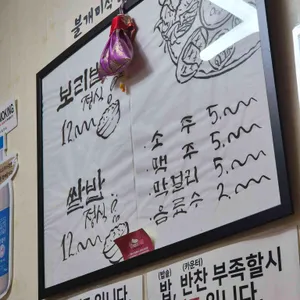 불개미식
보리밥
정식
12.
쌀밥
정식
12.
소 주 5.
맥 주 5.
막걸리 5.
음료수 2.
(밥솥) (카운터)
밥, 반찬 부족할시
입니다.
입니다.